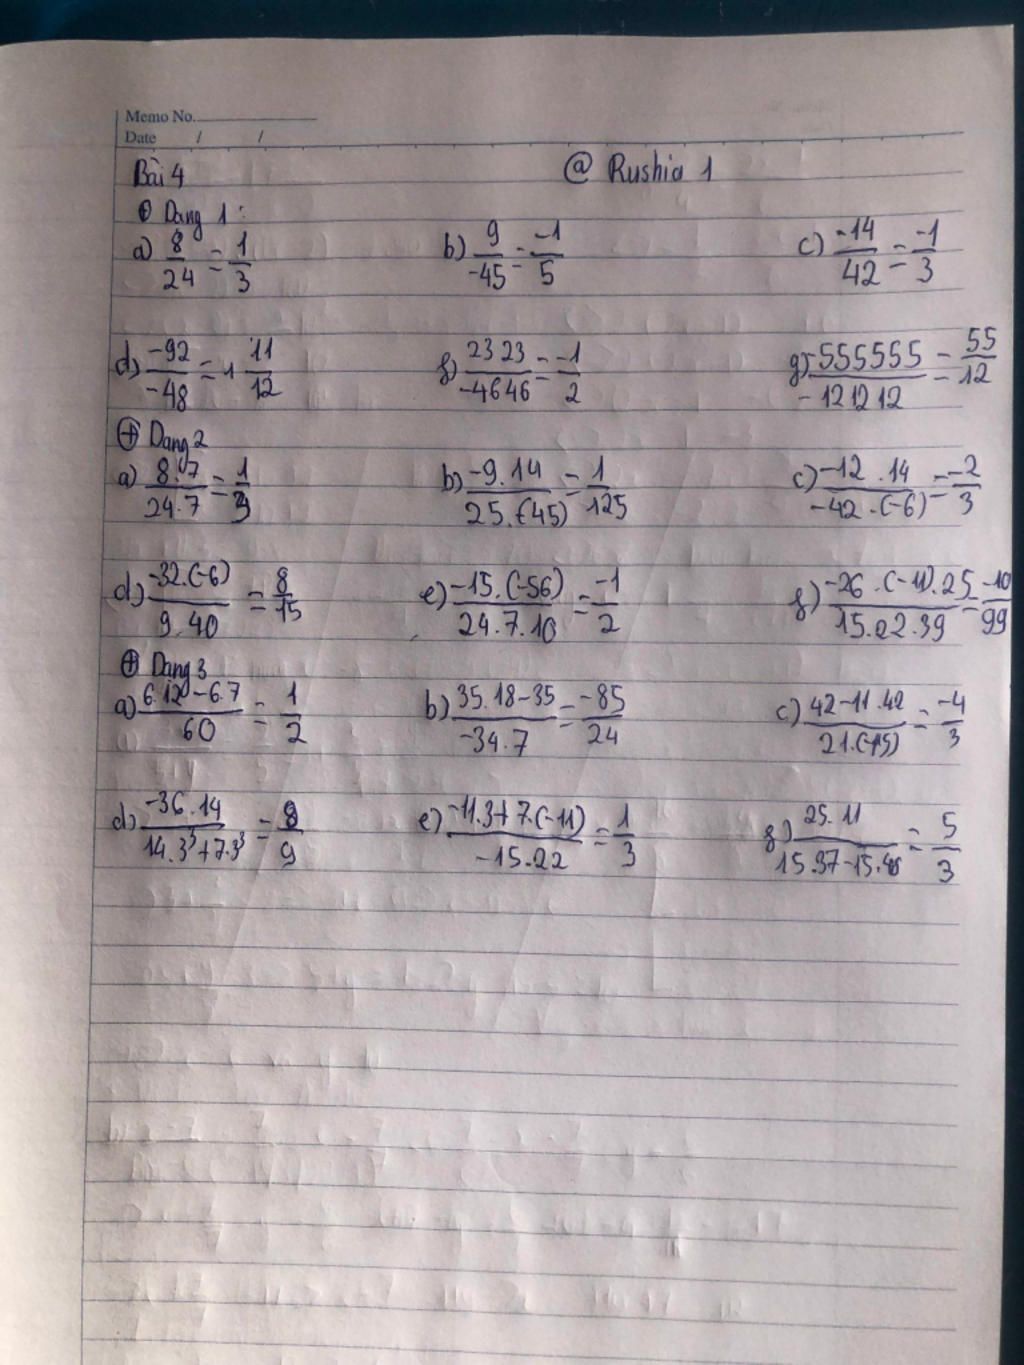 Memo No.
Date / /
Bài 4 @ Rushia 1
⊕ Dạng 1:
a) 8/24 = 1/3 b) 9/-45 = -1/5 c) -14/42 = -1/3
d) -92/-48 = 1 11/12 f) 2323/-4646 = -1/2 g) -555555/-121212 = 55/12
⊕ Dạng 2
a) 8.7/24.7 = 1/3 b) -9.14/25.(-45) = 1/125 c) -12.14/-42.(-6) = -2/3
d) -32.(-6)/9.40 = 8/15 e) -15.(-56)/24.7.10 = -1/2 f) -26.(-11).25/15.22.39 = -10/99
⊕ Dạng 3
a) 6.12-6.7/60 = 1/2 b) 35.18-35/-34.7 = -85/24 c) 42-11.42/21.(-15) = -4/3
d) -36.14/14.3³+7.3³ = 8/9 e) -11.3+7.(-11)/-15.22 = 1/3 g) 25.11/15.37-15.48 = 5/3